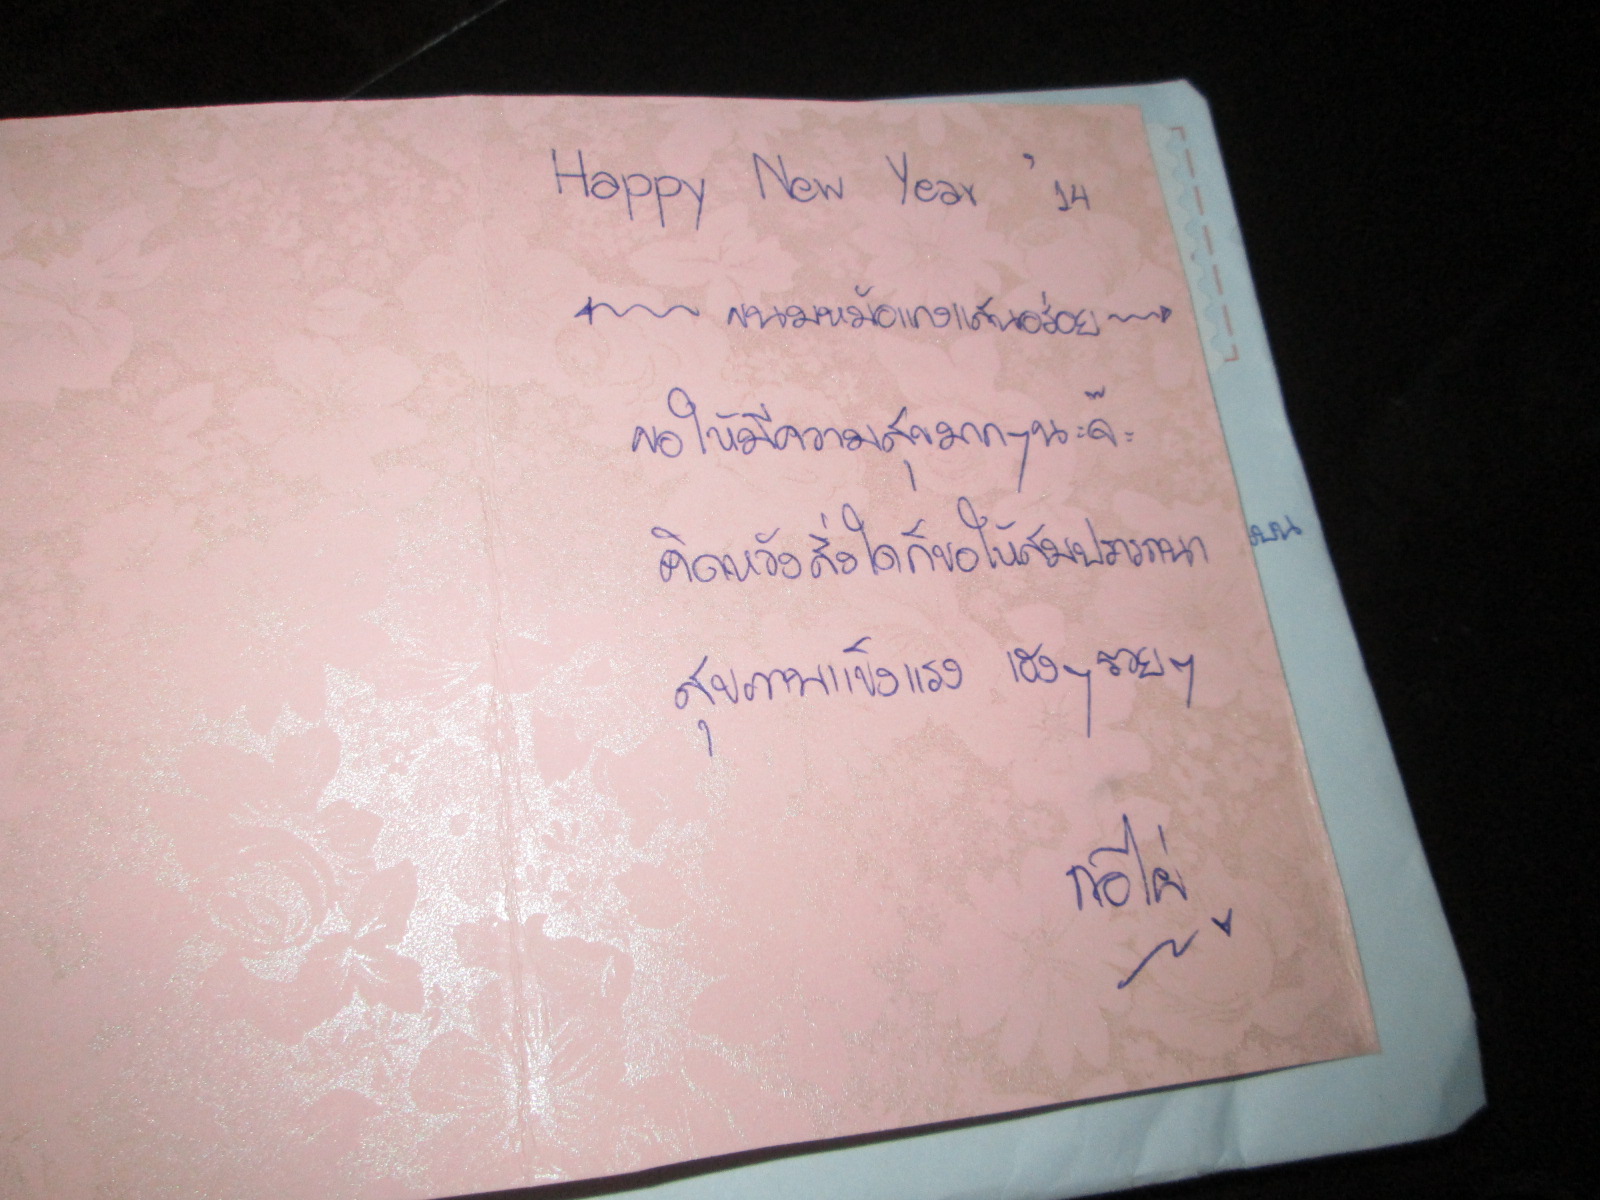 Happy New Year '14
ขนมหม้อแกงแสนอร่อย
ขอให้มีความสุขมากๆนะจ๊ะ
คิดหวังสิ่งใดก็ขอให้สมปรารถนา
สุขภาพแข็งแรง เฮงๆรวยๆ
กอไผ่